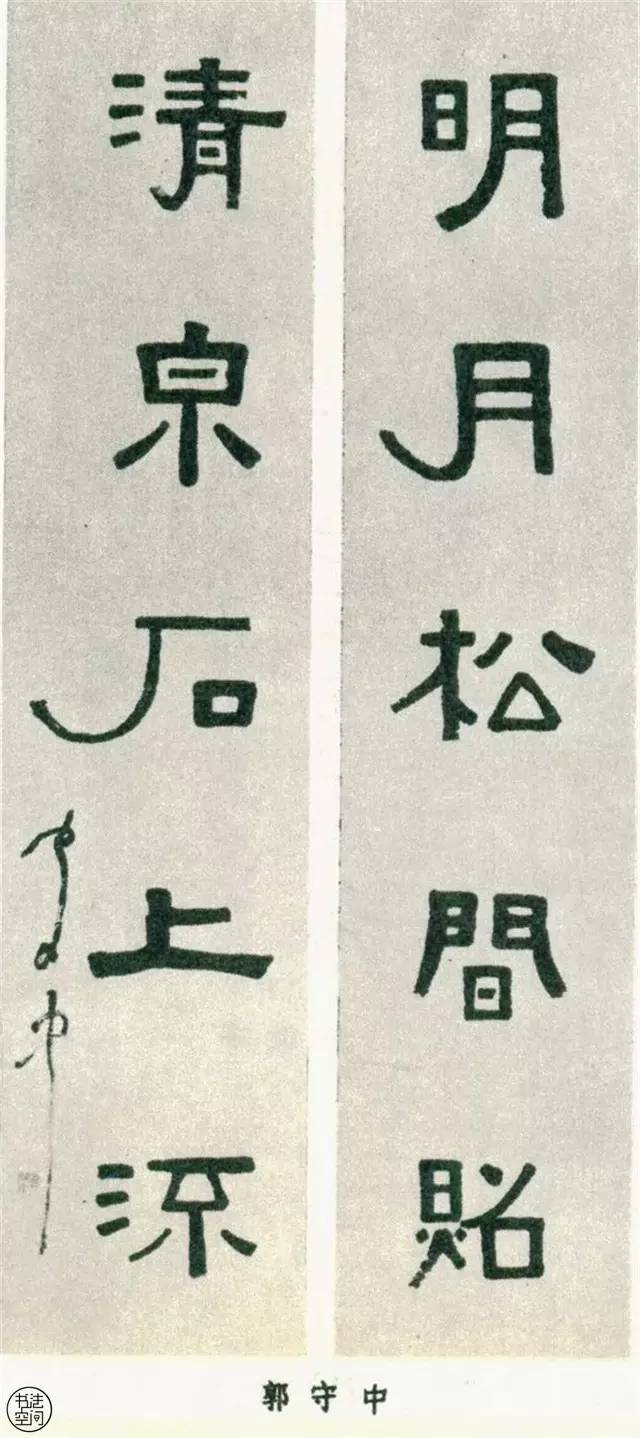 明月松間照
清泉石上流
守中
郭守中
书法
空间